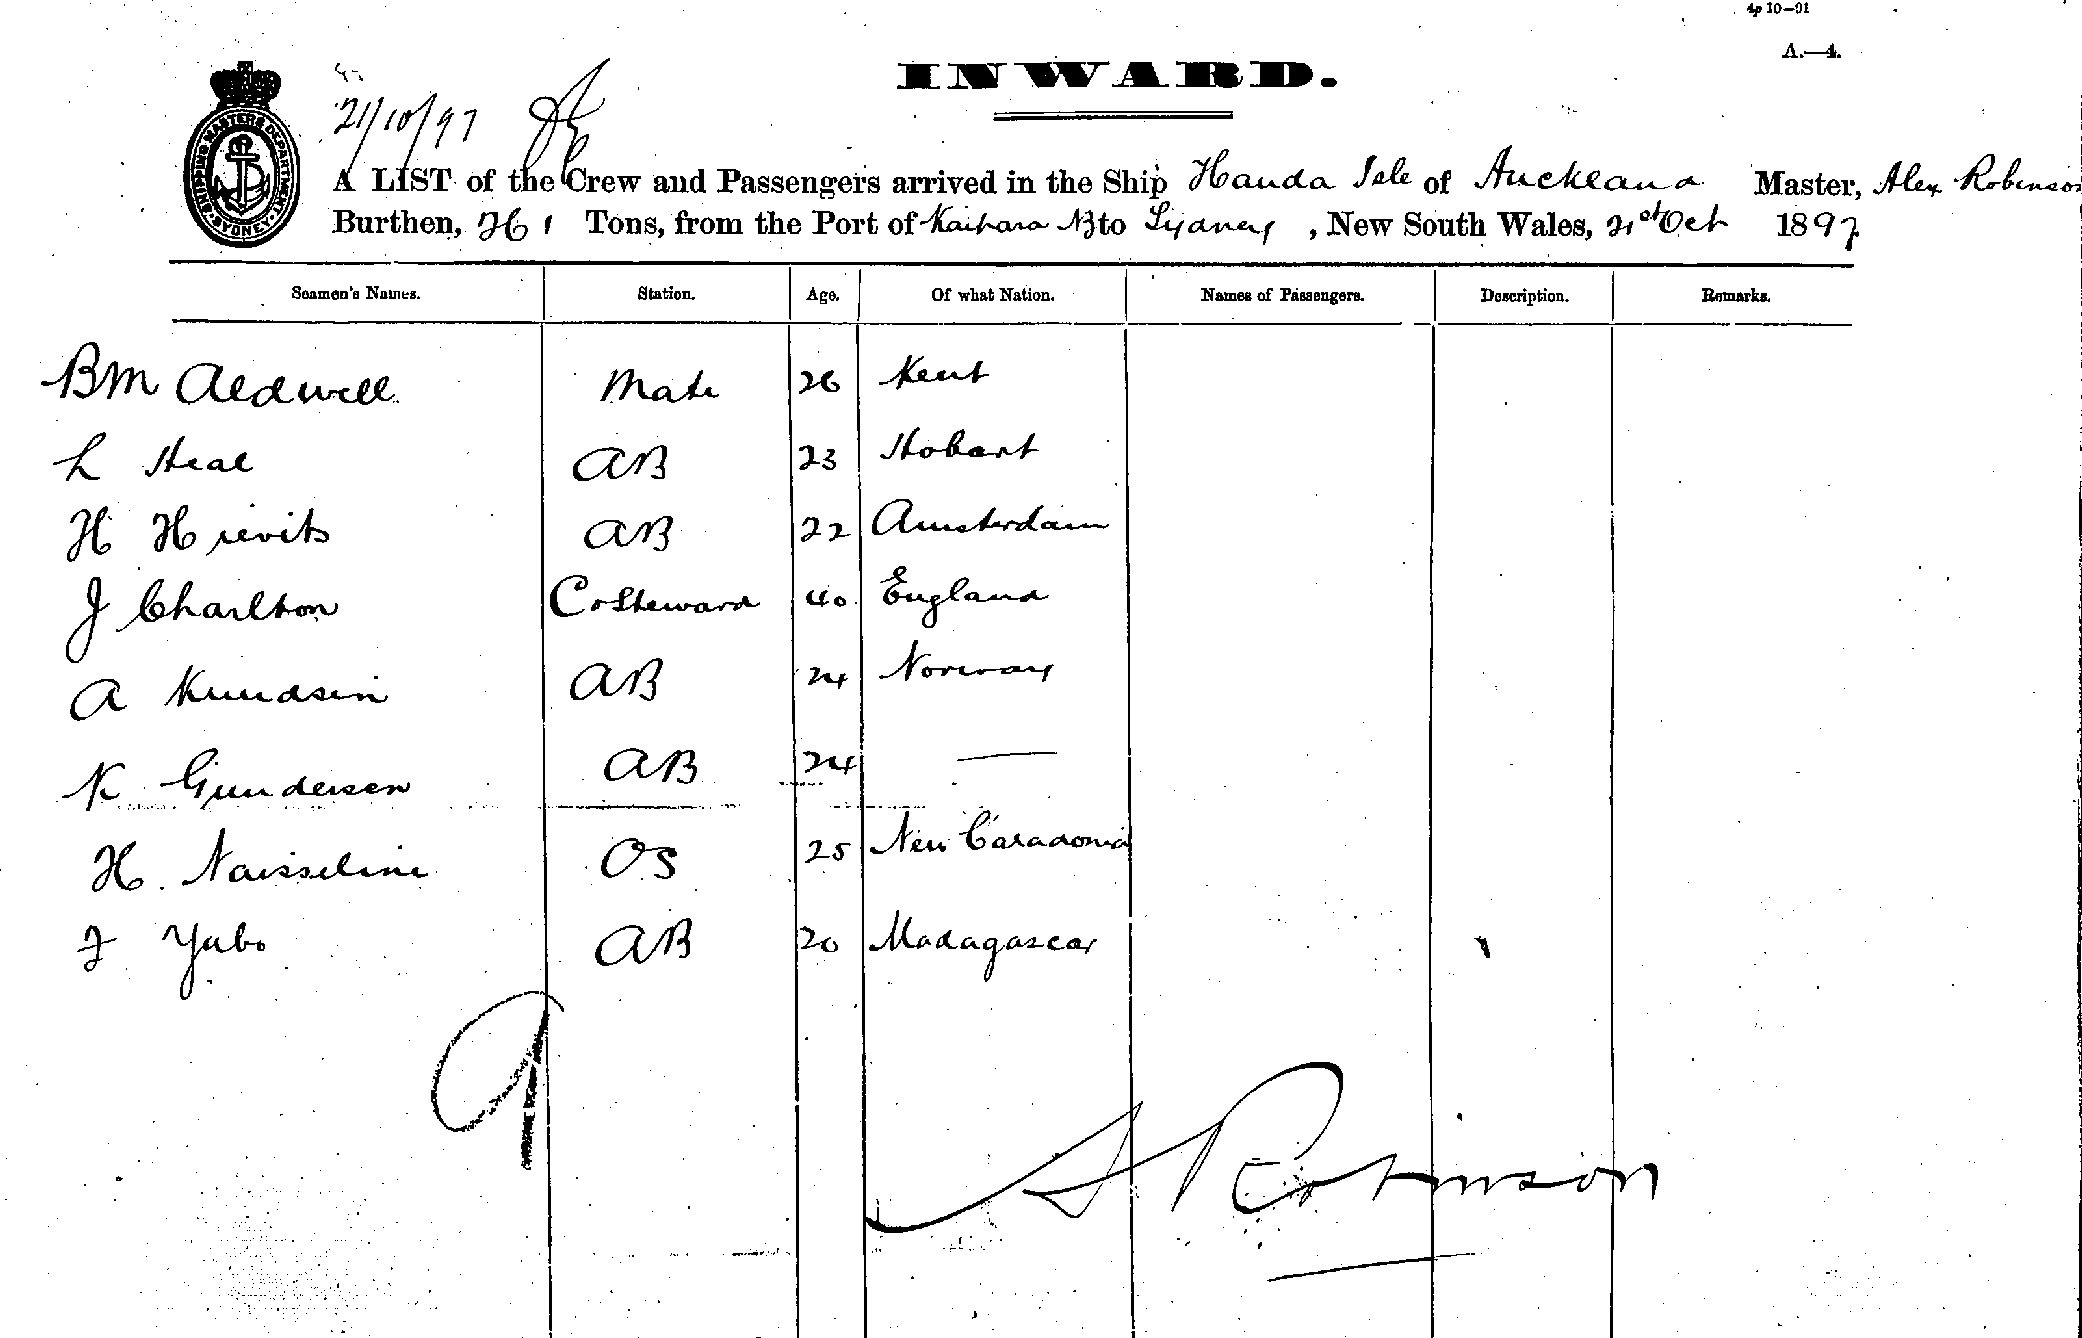 4p 10—91
A.—4.
INWARD.
SHIPPING MASTERS DEPARTMENT. SYDNEY.
21/10/97
A LIST of the Crew and Passengers arrived in the Ship Handa Isle of Auckland Master, Alex Robinson
Burthen, 261 Tons, from the Port of Kaipara NZ to Sydney, New South Wales, 21st Oct 1897
Seamen's Names. Station. Age. Of what Nation. Names of Passengers. Description. Remarks.
BM Aldwell Mate 26 Kent
L Heal AB 23 Hobart
H Hrevits AB 22 Amsterdam
J Charlton Co Steward 40 England
A Knudsin AB 24 Norway
K Gundersen AB 24 —
H. Naisseline OS 25 New Caradonia
J Yabo AB 20 Madagascar
A Robinson